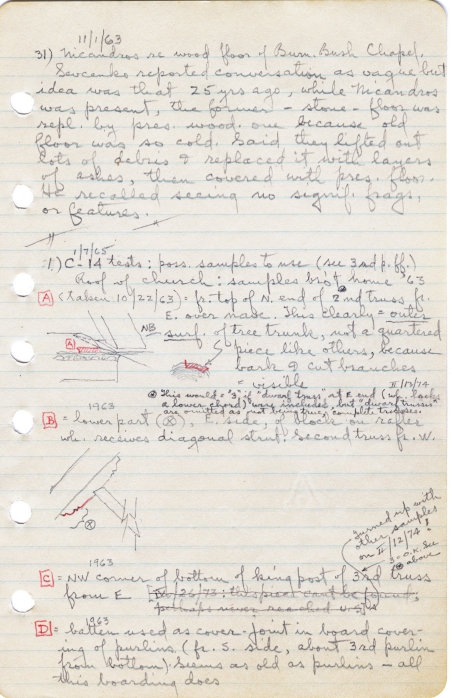 11/1/63
31) Nicandros re wood floor of Burn. Bush Chapel.
Sevcenko reported conversation as vague but
idea was that 25 yrs ago, while Nicandros
was present, the former - stone - floor was
repl. by pres. wood. one because old
floor was so cold. Said they lifted out
lots of debris & replaced it with layers
of ashes, then covered with pres. floor.
He recalled seeing no signif. frags.
or features.
1/7/65
1) C-14 tests: poss. samples to use (see 3rd p. ff.)
Roof of church: samples bro't home '63
A (taken 10/22/63) = fr. top of N. end of 2nd truss fr.
E. over nave. This clearly = outer
NB surf. of tree trunk, not a quartered
A piece like others, because
bark & cut branches
= visible
II/13/74
⊗ This would = "3" if "dwarf truss" at E end (wh. lacks
a lower chord) was included, but "dwarf trusses"
are omitted as not being true, complete trusses.
1963
B = lower part (⊗), E. side, of block on rafter
wh. receives diagonal strut. Second truss fr. W.
⊗
Turned up with
other samples
on II/12/74!
3 = O.K. See
⊗ above
1963
C = NW corner of bottom of king post of 3rd truss
from E [10/26/73: this piece can't be found,
perhaps never reached U.S.]
1963
D = batten used as cover-joint in board cover-
ing of purlins (fr. S. side, about 3rd purlin
from bottom). Seems as old as purlins - all
this boarding does